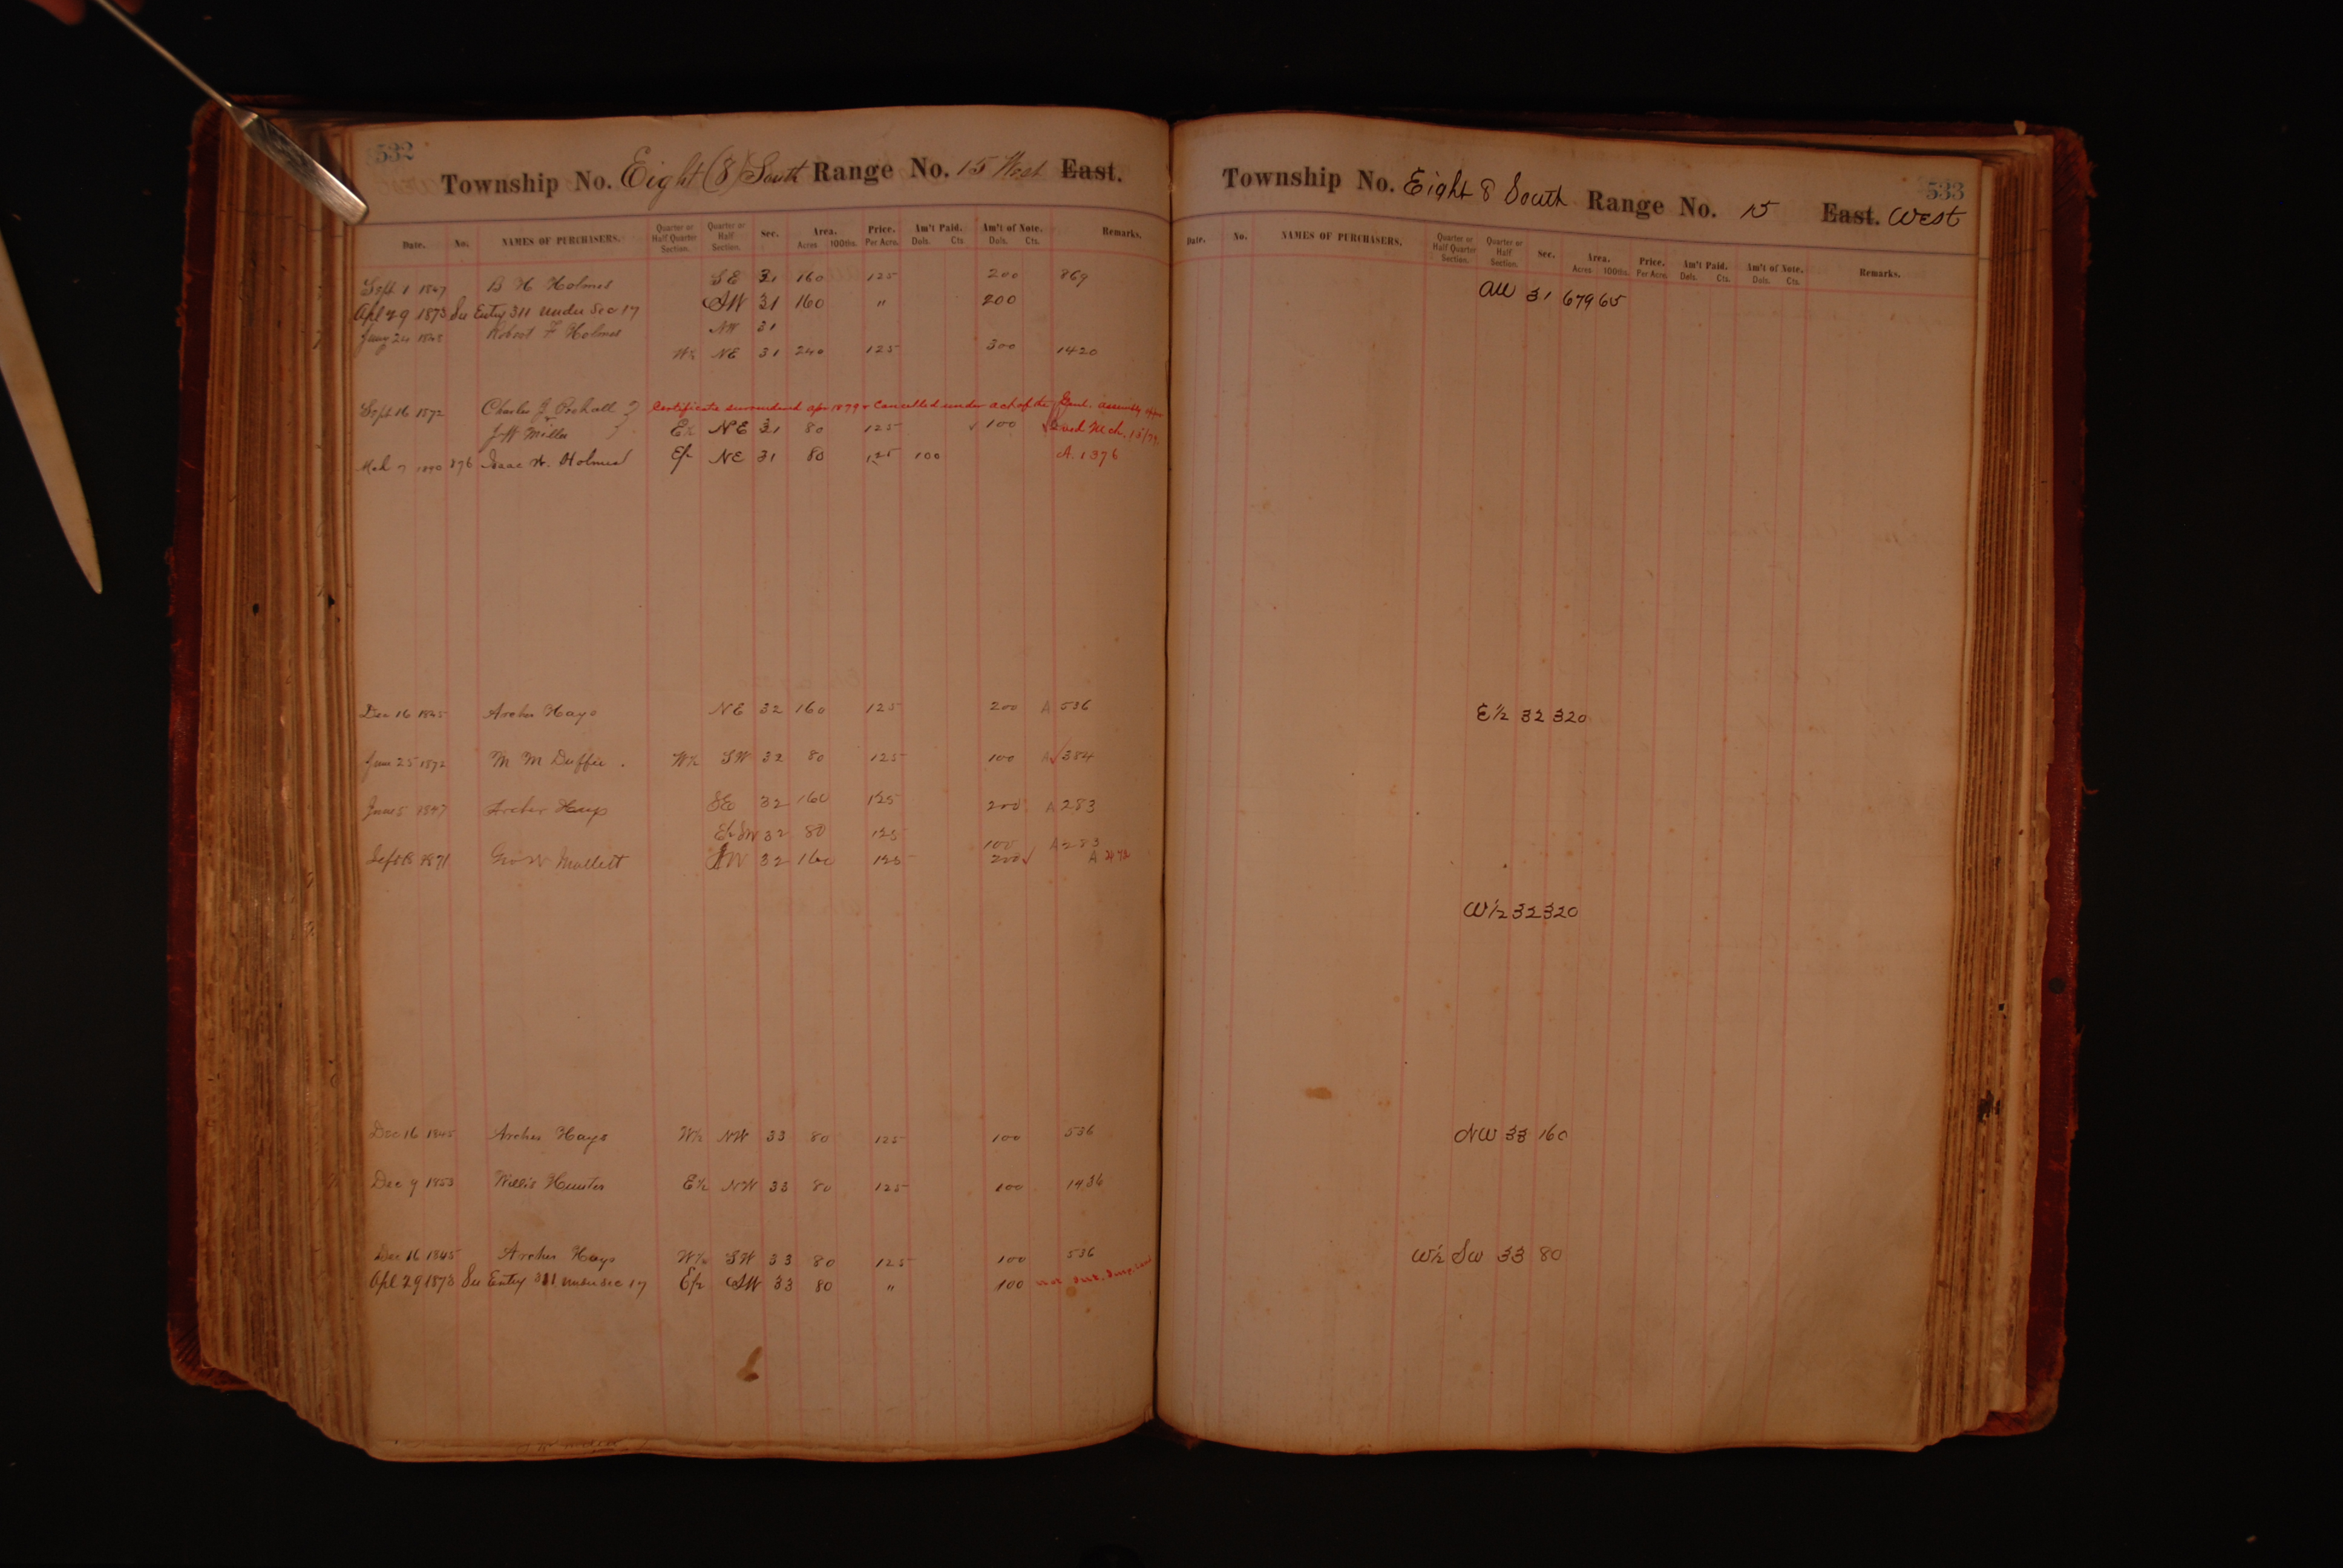 532
Township No. Eight (8) South Range No. 15 West East.
Date. No. NAMES OF PURCHASERS. Quarter or Half Quarter Section. Quarter or Half Section. Sec. Area. Acres 100ths. Price. Per Acre. Am't Paid. Dols. Cts. Am't of Note. Dols. Cts. Remarks.
Sept 1 1847 B H Holmes SE 31 160 125 200 869
Apl 29 1873 See Entry 311 under Sec 17 SW 31 160 " 200
Robert F Holmes NW 31
W½ NE 31 240 125 300 1420
Sept 16 1872 Charles J Certificate surrendered apr 1879 & Cancelled under act of the Genl. assembly
J W Miller E½ NE 31 80 125 100
Mch 7 1890 876 Isaac W. Holmes E½ NE 31 80 125 100 A. 1376
Dec 16 1845 Archer Hays NE 32 160 125 200 A 536
Jan 25 1872 M M Duffie. W½ SW 32 80 125 100 A 384
1847 Archer Hays SE 32 160 125 200 A 283
E½ SW 32 80 125 100 A 283
Sept 18 1871 Geo W Mallett NW 32 160 125 200 A 472
Dec 16 1845 Archer Hays W½ NW 33 80 125 100 536
Dec 9 1853 Willis Hunter E½ NW 33 80 125 100 1436
Dec 16 1845 Archer Hays W½ SW 33 80 125 100 536
Apl 29 1873 See Entry 311 under Sec 17 E½ SW 33 80 " 100
533
Township No. Eight 8 South Range No. 15 East. West
Date. No. NAMES OF PURCHASERS. Quarter or Half Quarter Section. Quarter or Half Section. Sec. Area. Acres 100ths. Price. Per Acre. Am't Paid. Dols. Cts. Am't of Note. Dols. Cts. Remarks.
All 31 679 65
E½ 32 320
W½ 32 320
NW 33 160
W½ SW 33 80